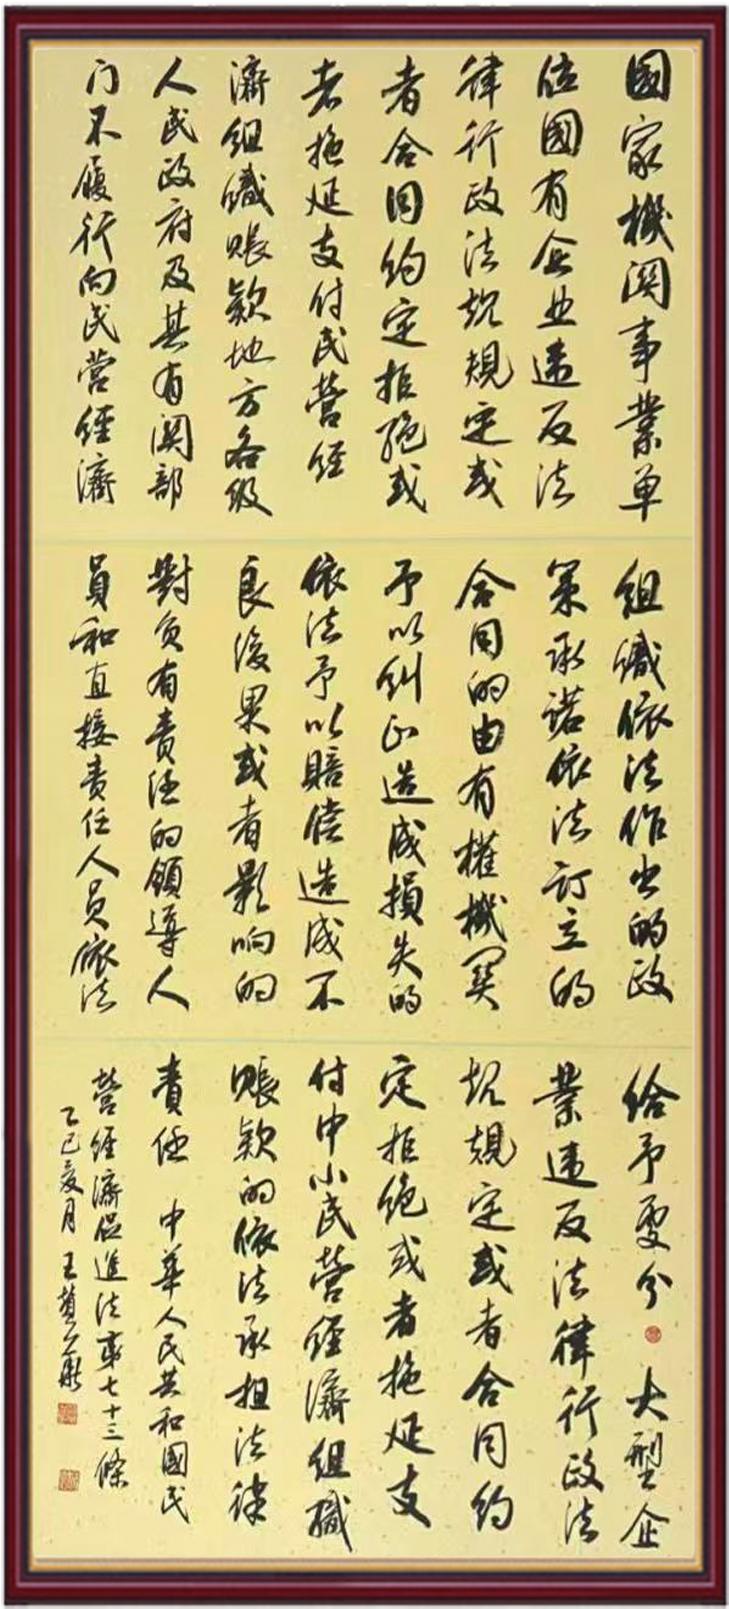 國家機関事業单
位國有企业違反法
律行政法规規定或
者合同约定拒绝或
者拖延支付民营经
濟组織賬款地方各级
人民政府及其有関部
门不履行向民营经濟
组織依法作出的政
策承诺依法订立的
合同的由有權機関
予以纠正造成損失的
依法予以賠偿造成不
良後果或者影响的
對负有责任的領導人
員和直接责任人员依法
给予處分 大型企
業違反法律行政法
规規定或者合同约
定拒绝或者拖延支
付中小民营经濟组織
賬款的依法承担法律
责任 中華人民共和國民
营经濟促進法第七十三條
乙巳夏月 王